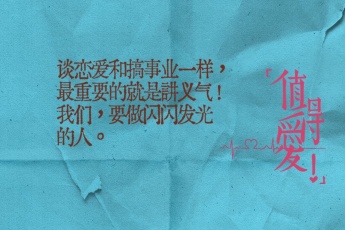 谈恋爱和搞事业一样，
最重要的就是講义气！
我们，要做闪闪发光
的人。
「值得爱！」